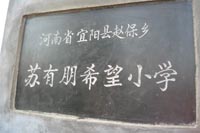 河南省宜阳县赵保乡
苏有朋希望小学